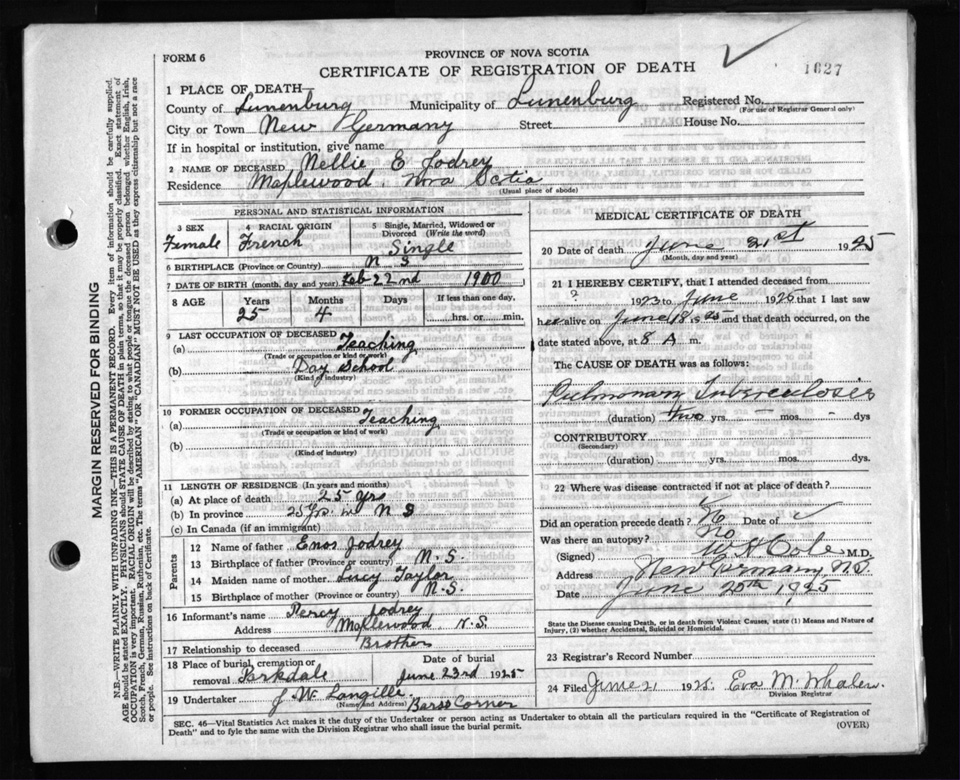 FORM 6
PROVINCE OF NOVA SCOTIA
CERTIFICATE OF REGISTRATION OF DEATH
1627
1 PLACE OF DEATH
County of Lunenburg Municipality of Lunenburg Registered No.
(For use of Registrar General only)
City or Town New Germany Street House No.
If in hospital or institution, give name
2 NAME OF DECEASED Nellie E Jodrey
Residence Maplewood Nova Scotia
(Usual place of abode)
PERSONAL AND STATISTICAL INFORMATION
3 SEX 4 RACIAL ORIGIN 5 Single, Married, Widowed or Divorced (Write the word)
Female French Single
6 BIRTHPLACE (Province or Country) N S
7 DATE OF BIRTH (month, day and year) Feb 22nd 1900
8 AGE Years Months Days If less than one day,
25 4 hrs. or min.
9 LAST OCCUPATION OF DECEASED
(a) Teaching
(Trade or occupation or kind of work)
(b) Day School
(Kind of industry)
10 FORMER OCCUPATION OF DECEASED
(a) Teaching
(Trade or occupation or kind of work)
(b)
(Kind of industry)
11 LENGTH OF RESIDENCE (In years and months)
(a) At place of death 25 Yrs
(b) In province 25 Yrs in N S
(c) In Canada (if an immigrant)
Parents
12 Name of father Enos Jodrey
13 Birthplace of father (Province or country) N.S.
14 Maiden name of mother Lucy Taylor
15 Birthplace of mother (Province or country) N.S.
16 Informant's name Percy Jodrey
Address Maplewood N.S.
17 Relationship to deceased Brother
18 Place of burial, cremation or removal Parkdale
Date of burial June 23rd 1925
19 Undertaker J W Langille Barss Corner
(Name and Address)
MEDICAL CERTIFICATE OF DEATH
20 Date of death June 21st 1925
(Month, day and year)
21 I HEREBY CERTIFY, that I attended deceased from
? 1923 to June 1925 that I last saw
her alive on June 18 1925 and that death occurred, on the
date stated above, at 8 A m.
The CAUSE OF DEATH was as follows:
Pulmonary Tuberculosis
(duration) two yrs. – mos. – dys
CONTRIBUTORY
(Secondary)
(duration) yrs. mos. dys.
22 Where was disease contracted if not at place of death?
Did an operation precede death? No Date of
Was there an autopsy? No
(Signed) W H Cole M.D.
Address New Germany N.S.
Date June 25th 1925
State the Disease causing Death, or in death from Violent Causes, state (1) Means and Nature of
Injury, (2) whether Accidental, Suicidal or Homicidal.
23 Registrar's Record Number
24 Filed June 21, 1925. Eva M. Whalen
Division Registrar
SEC. 46—Vital Statistics Act makes it the duty of the Undertaker or person acting as Undertaker to obtain all the particulars required in the "Certificate of Registration of
Death" and to fyle the same with the Division Registrar who shall issue the burial permit.
(OVER)
MARGIN RESERVED FOR BINDING
N.B.—WRITE PLAINLY WITH UNFADING INK—THIS IS A PERMANENT RECORD. Every item of information should be carefully supplied.
AGE should be stated EXACTLY. PHYSICIANS should STATE CAUSE OF DEATH in plain terms, so that it may be properly classified. Exact statement of
OCCUPATION is very important. RACIAL ORIGIN will be described by stating to what people or tongue the deceased person belonged, whether English, Irish,
Scotch, French, German, Russian, Ruthenian, etc. The terms "AMERICAN" OR "CANADIAN" MUST NOT BE USED as they express citizenship but not a race
or people. See instructions on back of Certificate.